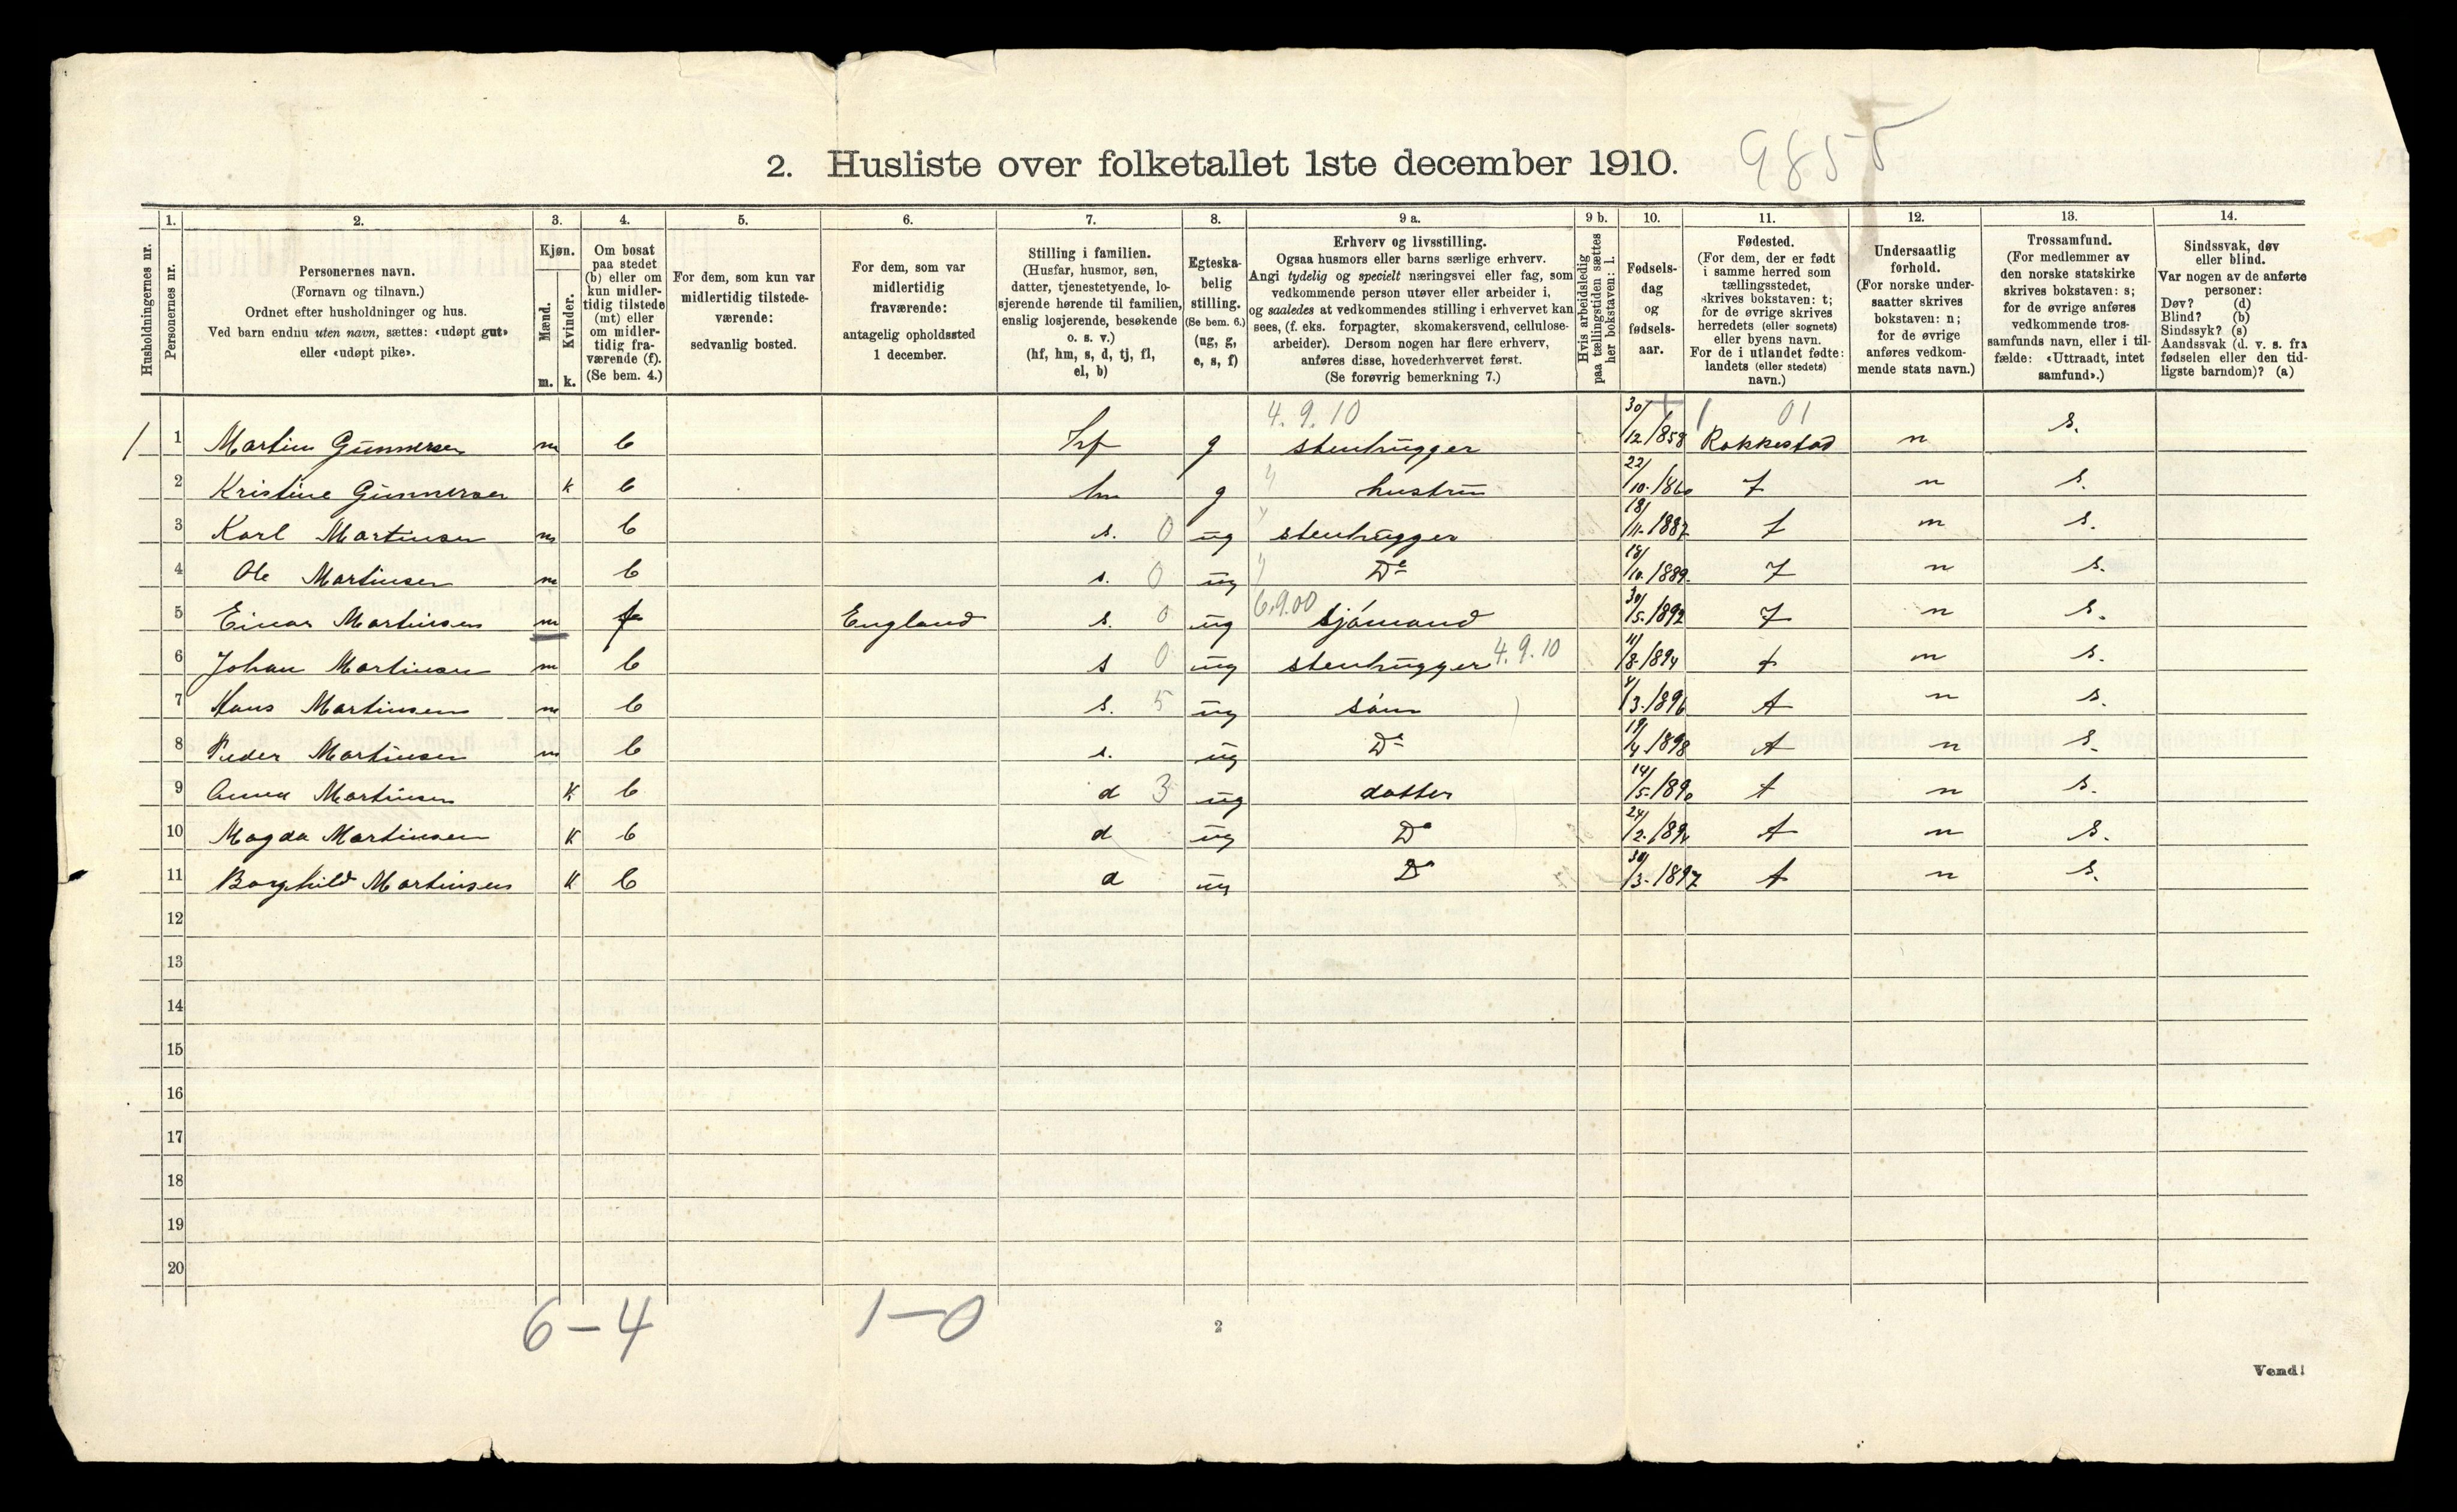 2. Husliste over folketallet 1ste december 1910. 9855
Husholdningernes nr.
1. Personernes nr.
2. Personernes navn.
(Fornavn og tilnavn.)
Ordnet efter husholdninger og hus.
Ved barn endnu uten navn, sættes: «udøpt gut»
eller «udøpt pike».
3. Kjøn.
Mænd. m.
Kvinder. k.
4. Om bosat
paa stedet
(b) eller om
kun midler-
tidig tilstede
(mt) eller
om midler-
tidig fra-
værende (f).
(Se bem. 4.)
5. For dem, som kun var
midlertidig tilstede-
værende:
sedvanlig bosted.
6. For dem, som var
midlertidig
fraværende:
antagelig opholdssted
1 december.
7. Stilling i familien.
(Husfar, husmor, søn,
datter, tjenestetyende, lo-
sjerende hørende til familien,
enslig losjerende, besøkende
o. s. v.)
(hf, hm, s, d, tj, fl,
el, b)
8. Egteska-
belig
stilling.
(Se bem. 6.)
(ug, g,
e, s, f)
9 a. Erhverv og livsstilling.
Ogsaa husmors eller barns særlige erhverv.
Angi tydelig og specielt næringsvei eller fag, som
vedkommende person utøver eller arbeider i,
og saaledes at vedkommendes stilling i erhvervet kan
sees, (f. eks. forpagter, skomakersvend, cellulose-
arbeider). Dersom nogen har flere erhverv,
anføres disse, hovederhvervet først.
(Se forøvrig bemerkning 7.)
9 b. Hvis arbeidsledig
paa tællingstiden sættes
her bokstaven: l.
10. Fødsels-
dag
og
fødsels-
aar.
11. Fødested.
(For dem, der er født
i samme herred som
tællingsstedet,
skrives bokstaven: t;
for de øvrige skrives
herredets (eller sognets)
eller byens navn.
For de i utlandet fødte:
landets (eller stedets)
navn.)
12. Undersaatlig
forhold.
(For norske under-
saatter skrives
bokstaven: n;
for de øvrige
anføres vedkom-
mende stats navn.)
13. Trossamfund.
(For medlemmer av
den norske statskirke
skrives bokstaven: s;
for de øvrige anføres
vedkommende tros-
samfunds navn, eller i til-
fælde: «Uttraadt, intet
samfund».)
14. Sindssvak, døv
eller blind.
Var nogen av de anførte
personer:
Døv? (d)
Blind? (b)
Sindssyk? (s)
Aandssvak (d. v. s. fra
fødselen eller den tid-
ligste barndom)? (a)
4.9.10 01
1 1 Martin Gunnersen m b hf g stenhugger 30/12 1858 Rakkestad n s.
2 Kristine Gunnersen k b hm g hustru 22/10 1860 t n s.
3 Karl Martinsen m b s. 0 ug stenhugger 18/11 1887 t n s.
4 Ole Martinsen m b s. 0 ug Do 18/10 1889 t n s.
5 Einar Martinsen m f England s. 0 ug 6.9.00 sjómand 30/5 1892 t n s.
6 Johan Martinsen m b s 0 ug stenhugger 4.9.10 11/8 1894 t n s.
7 Hans Martinsen m b s. 5 ug sóm 4/3 1896 t n s.
8 Peder Martinsen m b s. ug Do 19/4 1898 t n s.
9 Anna Martinsen k b d 3 ug datter 14/5 1890 t n s.
10 Magda Martinsen k b d ug Do 24/2 t n s.
11 Borghild Martinsen k b d ug Do 30/3 1897 t n s.
12
13
14
15
16
17
18
19
20
6-4 1-0
2
Vend!